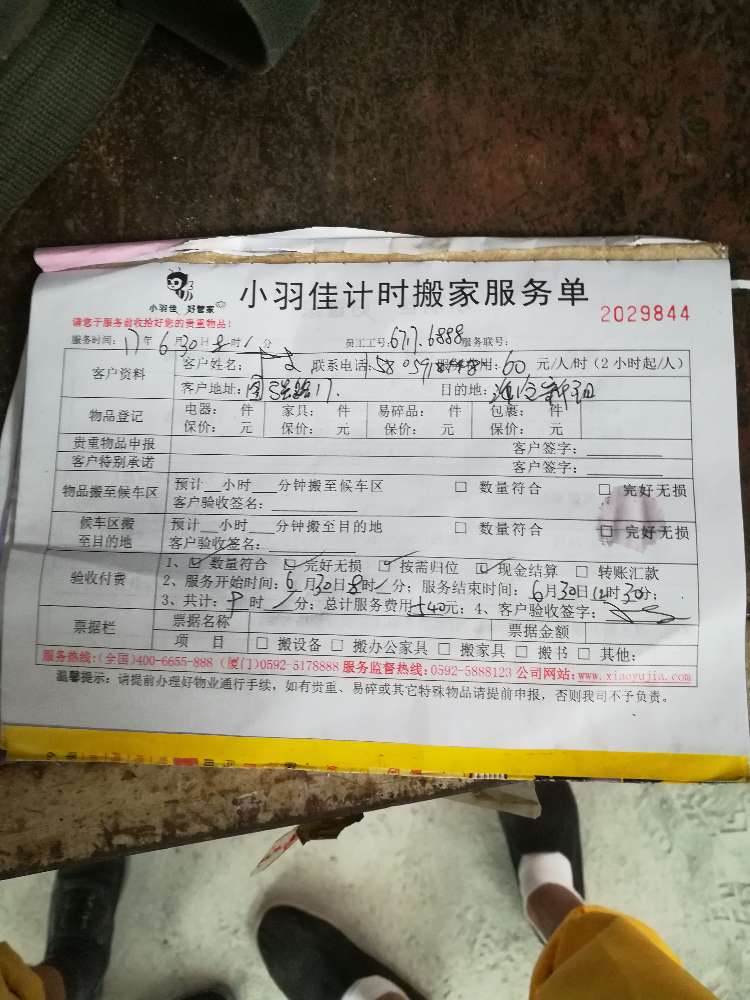 小羽佳 好管家
小羽佳计时搬家服务单
2029844
请您于服务前收拾好您的贵重物品!
服务时间: 17年6月30日 时 分 员工工号: 677.6888 服务联号:
客户资料
客户姓名: 联系电话: 服务费用: 60 元/人/时(2小时起/人)
客户地址: 目的地:
物品登记
电器: 件 家具: 件 易碎品: 件 包裹: 件
保价: 元 保价: 元 保价: 元 保价: 元
贵重物品申报 客户签字:
客户特别承诺 客户签字:
物品搬至候车区
预计__小时 __分钟搬至候车区 □ 数量符合 □ 完好无损
客户验收签名:
候车区搬至目的地
预计__小时 __分钟搬至目的地 □ 数量符合 □ 完好无损
客户验收签名:
验收付费
1、☑ 数量符合 ☑ 完好无损 ☑ 按需归位 ☑ 现金结算 □ 转账汇款
2、服务开始时间: 6月30日8时/分; 服务结束时间: 6月30日12时30分;
3、共计: 时/分; 总计服务费用540元; 4、客户验收签字:
票据栏
票据名称 票据金额
项 目 □ 搬设备 □ 搬办公家具 □ 搬家具 □ 搬书 □ 其他:
服务热线:(全国)400-6655-888 (厦门)0592-5178888 服务监督热线:0592-5888123 公司网站:www.xiaoyujia.com
温馨提示: 请提前办理好物业通行手续, 如有贵重、易碎或其它特殊物品请提前申报, 否则我司不予负责。